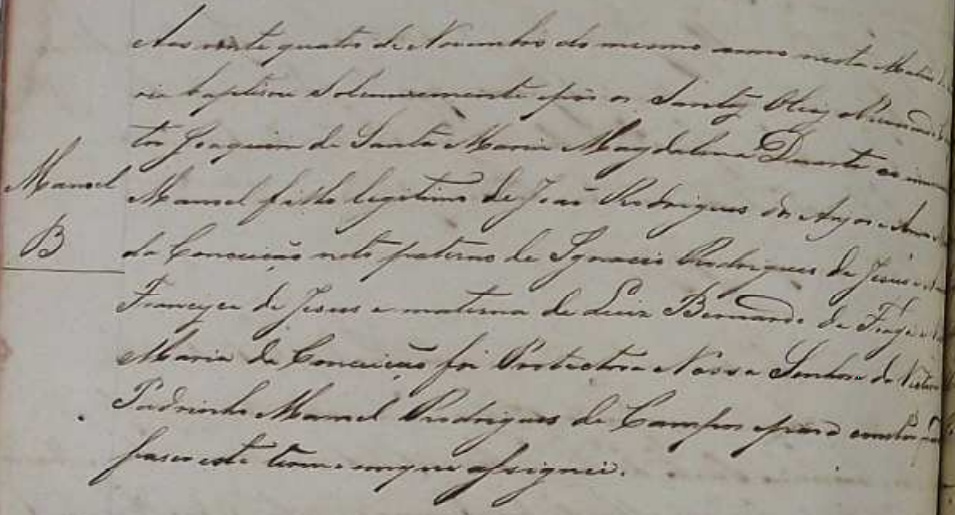 Aos vinte quatro de Novembro do mesmo anno nesta Matriz
ria baptisou Solemnemente e pôs os Santos Oleos o Reverendo
tor Joaquim de Santa Maria Magdalena Duarte ao inno
Manoel
Manoel filho legitimo de João Rodrigues dos Anjos e Anna
B
da Conceição neto paterno de Ignacio Rodrigues de Jesus e
Francisca de Jesus e materno de Luiz Bernardo de
Maria da Conceição foi Protectora Nossa Senhora da
Padrinho Manoel Rodrigues de Campos e para constar
faser este termo em que assignei.